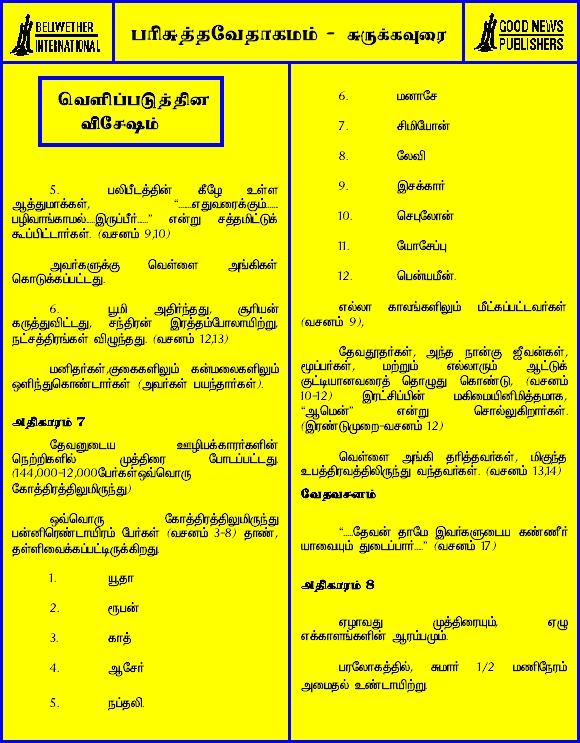 BELLWETHER
INTERNATIONAL
பரிசுத்தவேதாகமம் - சுருக்கவுரை
GOOD NEWS
PUBLISHERS
வெளிப்படுத்தின
விசேஷம்
5. பலிபீடத்தின் கீழே உள்ள
ஆத்துமாக்கள், “......எதுவரைக்கும்......
பழிவாங்காமல்....இருப்பீர்.....” என்று சத்தமிட்டுக்
கூப்பிட்டார்கள். (வசனம் 9,10)
அவர்களுக்கு வெள்ளை அங்கிகள்
கொடுக்கப்பட்டது.
6. பூமி அதிர்ந்தது, சூரியன்
கருத்துவிட்டது, சந்திரன் இரத்தம்போலாயிற்று,
நட்சத்திரங்கள் விழுந்தது. (வசனம் 12,13)
மனிதர்கள்,குகைகளிலும் கன்மலைகளிலும்
ஒளிந்துகொண்டார்கள் (அவர்கள் பயந்தார்கள்).
அதிகாரம் 7
தேவனுடைய ஊழியக்காரர்களின்
நெற்றிகளில் முத்திரை போடப்பட்டது.
(144,000-12,000பேர்கள்ஒவ்வொரு
கோத்திரத்திலுமிருந்து)
ஒவ்வொரு கோத்திரத்திலுமிருந்து
பன்னிரெண்டாயிரம் பேர்கள் (வசனம் 3-8) தாண்,
தள்ளிவைக்கப்பட்டிருக்கிறது.
1. யூதா
2. ரூபன்
3. காத்
4. ஆசேர்
5. நப்தலி.
6. மனாசே
7. சிமியோன்
8. லேவி
9. இசக்கார்
10. செபுலோன்
11. யோசேப்பு
12. பென்யமீன்.
எல்லா காலங்களிலும் மீட்கப்பட்டவர்கள்
(வசனம் 9),
தேவதூதர்கள், அந்த நான்கு ஜீவன்கள்,
மூப்பர்கள், மற்றும் எல்லாரும் ஆட்டுக்
குட்டியானவரைத் தொழுது கொண்டு, (வசனம்
10-12) இரட்சிப்பின் மகிமையினிமித்தமாக,
“ஆமென்” என்று சொல்லுகிறார்கள்.
(இரண்டுமுறை-வசனம் 12)
வெள்ளை அங்கி தரித்தவர்கள், மிகுந்த
உபத்திரவத்திலிருந்து வந்தவர்கள். (வசனம் 13,14)
வேதவசனம்
“.....தேவன் தாமே இவர்களுடைய கண்ணீர்
யாவையும் துடைப்பார்....” (வசனம் 17)
அதிகாரம் 8
ஏழாவது முத்திரையும், ஏழு
எக்காளங்களின் ஆரம்பமும்.
பரலோகத்தில், சுமார் 1/2 மணிநேரம்
அமைதல் உண்டாயிற்று.